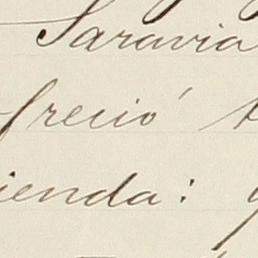 Saravia
freció
ienda: